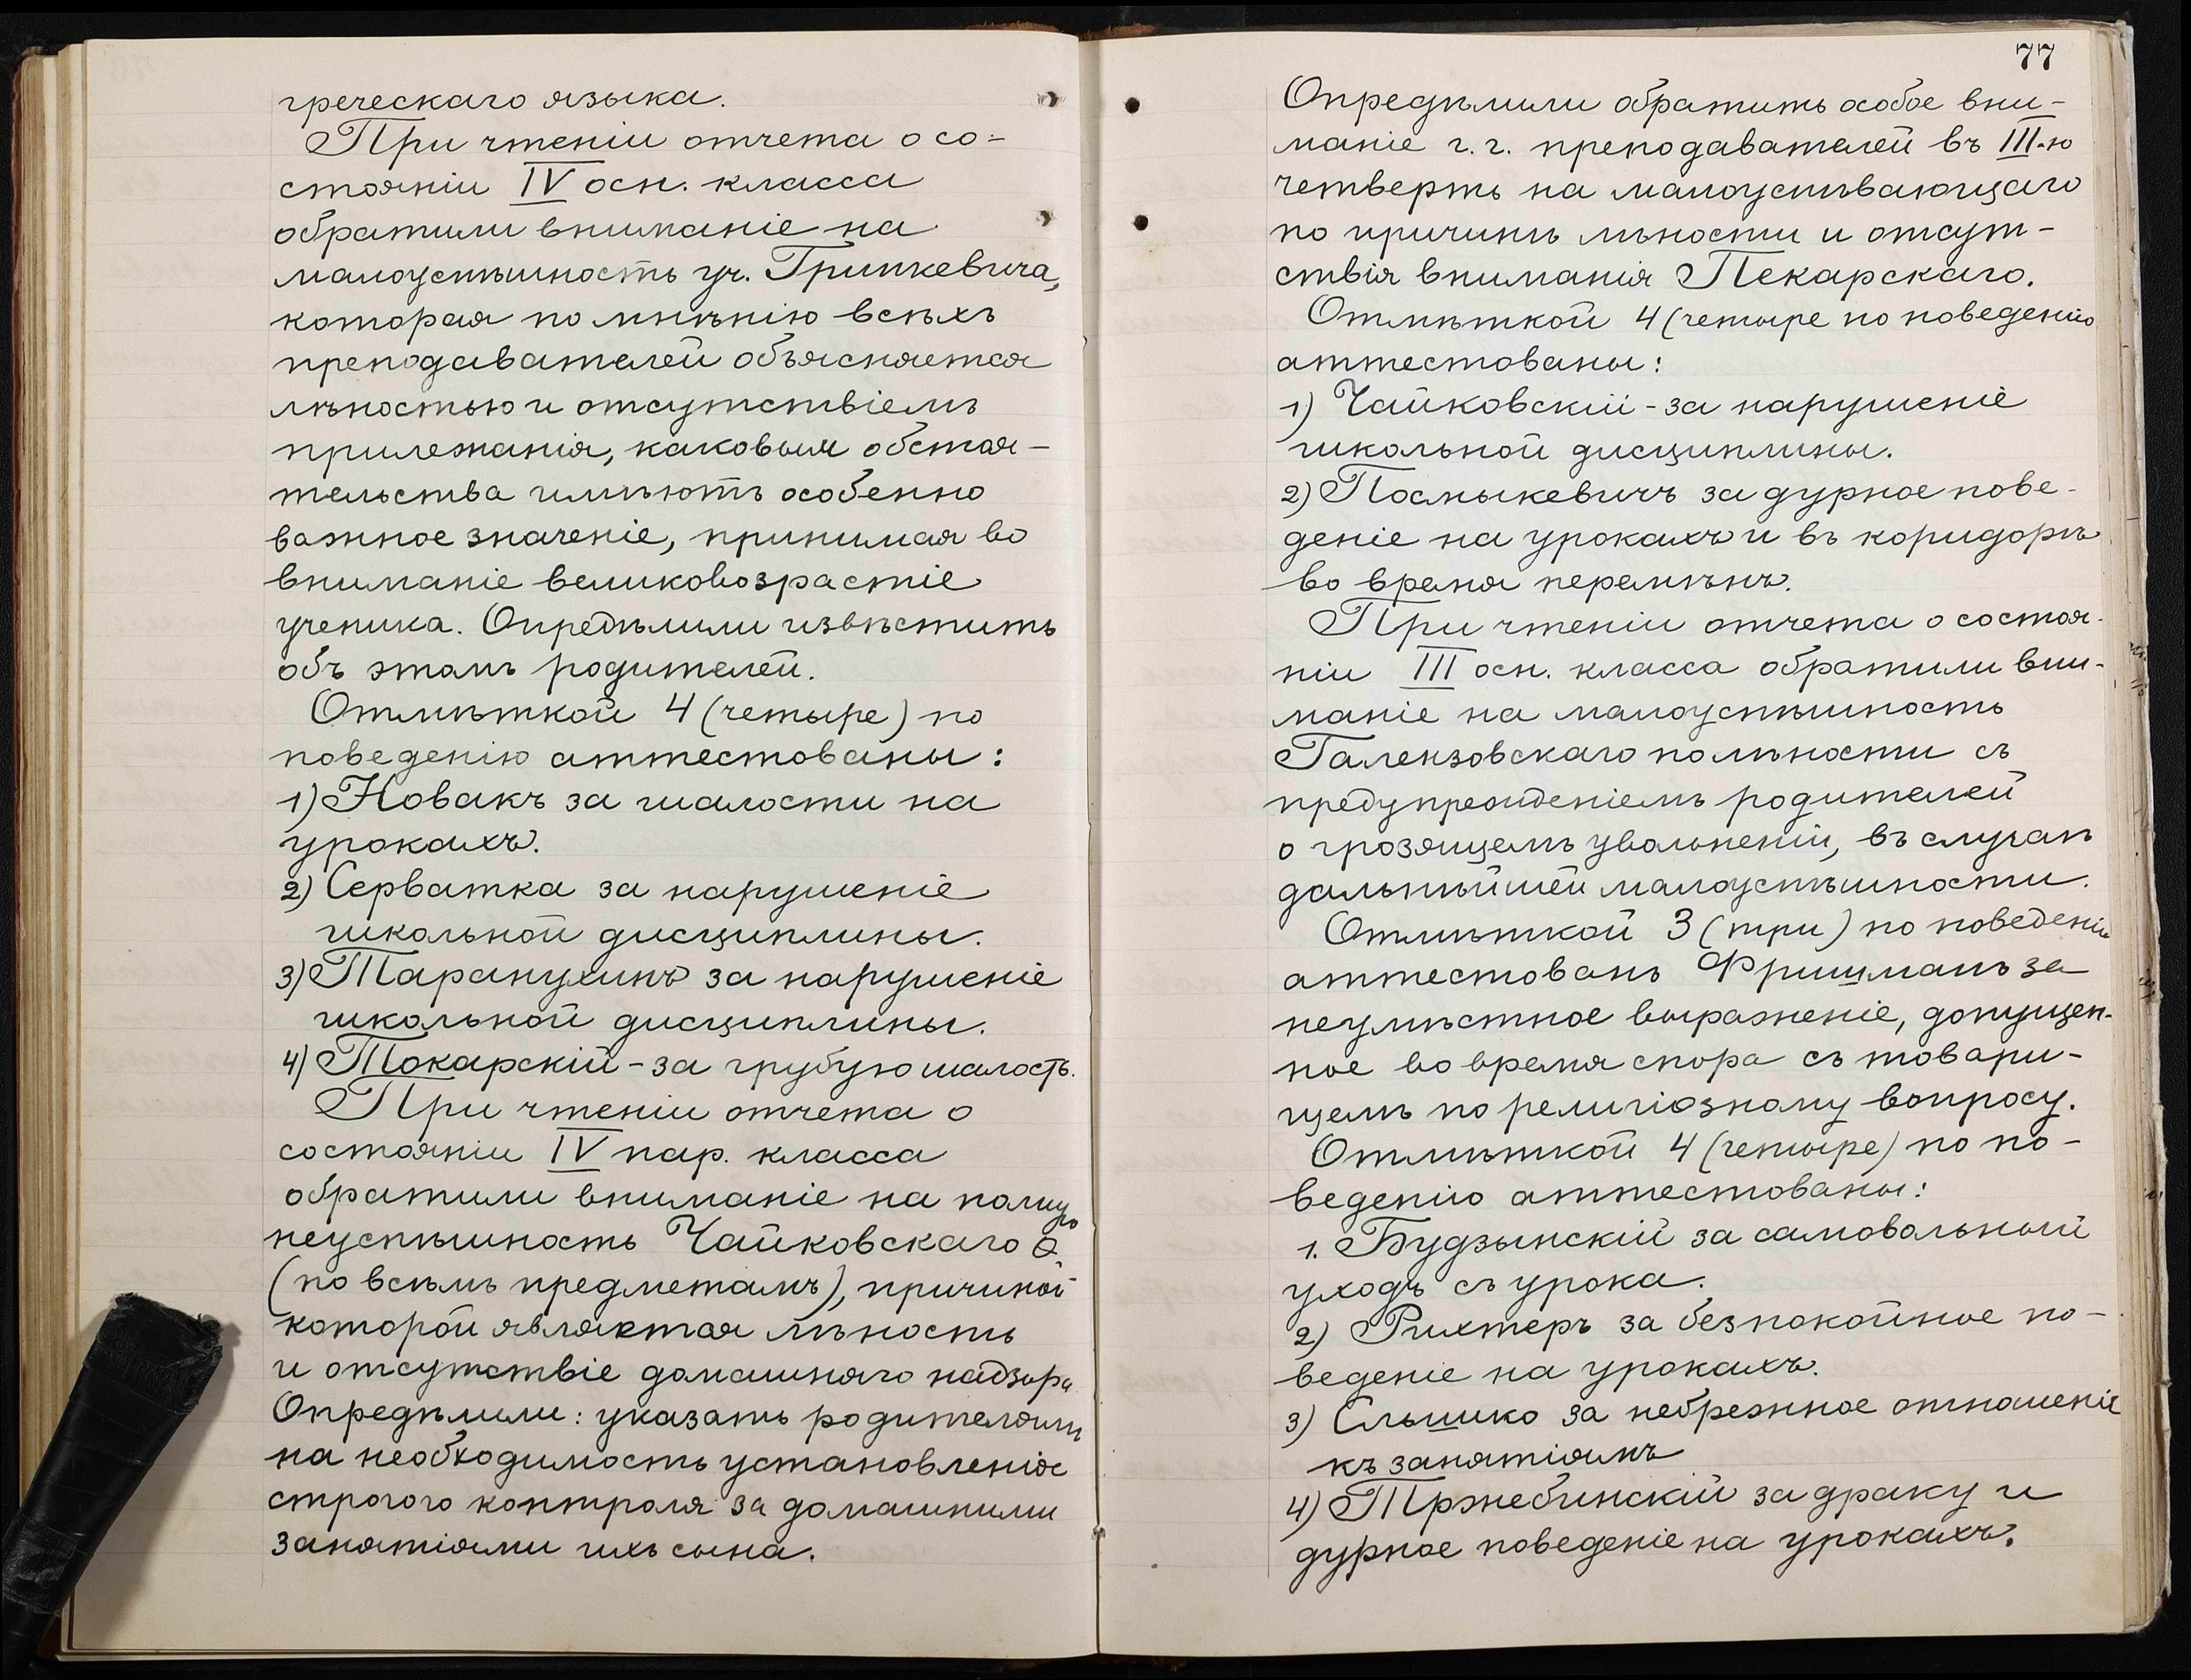 греческаго языка.
При чтеніи отчета о со=
стояніи IV осн. класса
обратили вниманіе на
малоуспѣшность уч. Гринкевича,
которая по мнѣнію всѣхъ
преподавателей объясняется
лѣностью и отсутствіемъ
прилежанія, каковыя обстоя-
тельства имѣютъ особенно
важное значеніе, принимая во
вниманіе великовозрастіе
ученика. Опредѣлили извѣстить
объ этомъ родителей.
Отмѣткой 4 (четыре) по
поведенію аттестованы:
1) Новакъ за шалости на
урокахъ.
2) Серватка за нарушеніе
школьной дисциплины.
3) Таранухинъ за нарушеніе
школьной дисциплины.
4) Токарскій - за грубую шалость.
При чтеніи отчета о
состояніи IV пар. класса
обратили вниманіе на полную
неуспѣшность Чайковскаго Ѳ.
(по всѣмъ предметамъ), причиной
которой является лѣность
и отсутствіе домашняго надзора
Опредѣлили: указать родителямъ
на необходимость установленія
строгого контроля за домашними
занятіями ихъ сына.
77
Опредѣлили обратить особое вни-
маніе г. г. преподавателей въ III-ю
четверть на малоуспѣвающаго
по причинѣ лѣности и отсут-
ствія вниманія Пекарскаго.
Отмѣткой 4 (четыре по поведенію
аттестованы:
1) Чайковскій - за нарушеніе
школьной дисциплины.
2) Посмыкевичъ за дурное пове-
деніе на урокахъ и въ коридорѣ
во время перемѣнъ.
При чтеніи отчета о состоя-
ніи III осн. класса обратили вни-
маніе на малоуспѣшность
Галензовскаго по лѣности съ
предупрежденіемъ родителей
о грозящемъ увольненіи, въ случаѣ
дальнѣйшей малоуспѣшности.
Отмѣткой 3 (три) по поведенію
аттестованъ Фришманъ за
неумѣстное выраженіе, допущен-
ное во время спора съ товари-
щемъ по религіозному вопросу.
Отмѣткой 4 (четыре) по по-
веденію аттестованы:
1. Будзынскій за самовольный
уходъ съ урока.
2) Рихтеръ за безпокойное по-
веденіе на урокахъ.
3) Слышко за небрежное отношеніе
къ занятіямъ
4) Тржебинскій за драку и
дурное поведеніе на урокахъ.